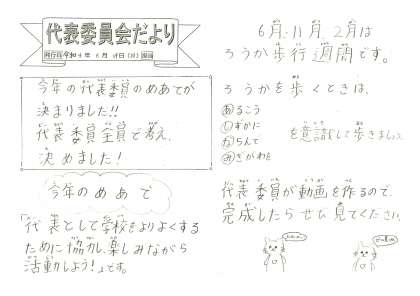 代表委員会だより
今年の代表委員のめあてが
決まりました!!
代表委員全員で考え、
決めました!
今年のめあて
「代表として学校をよりよくする
ために協力し、楽しみながら
活動しよう!」です。
6月、11月、2月は
ろうか歩行週間です。
ろうかを歩くときは、
あるこう
しずかに
ならんで
みぎがわを
を意識して歩きましょう
代表委員が動画を作るので、
完成したらぜひ見てください。